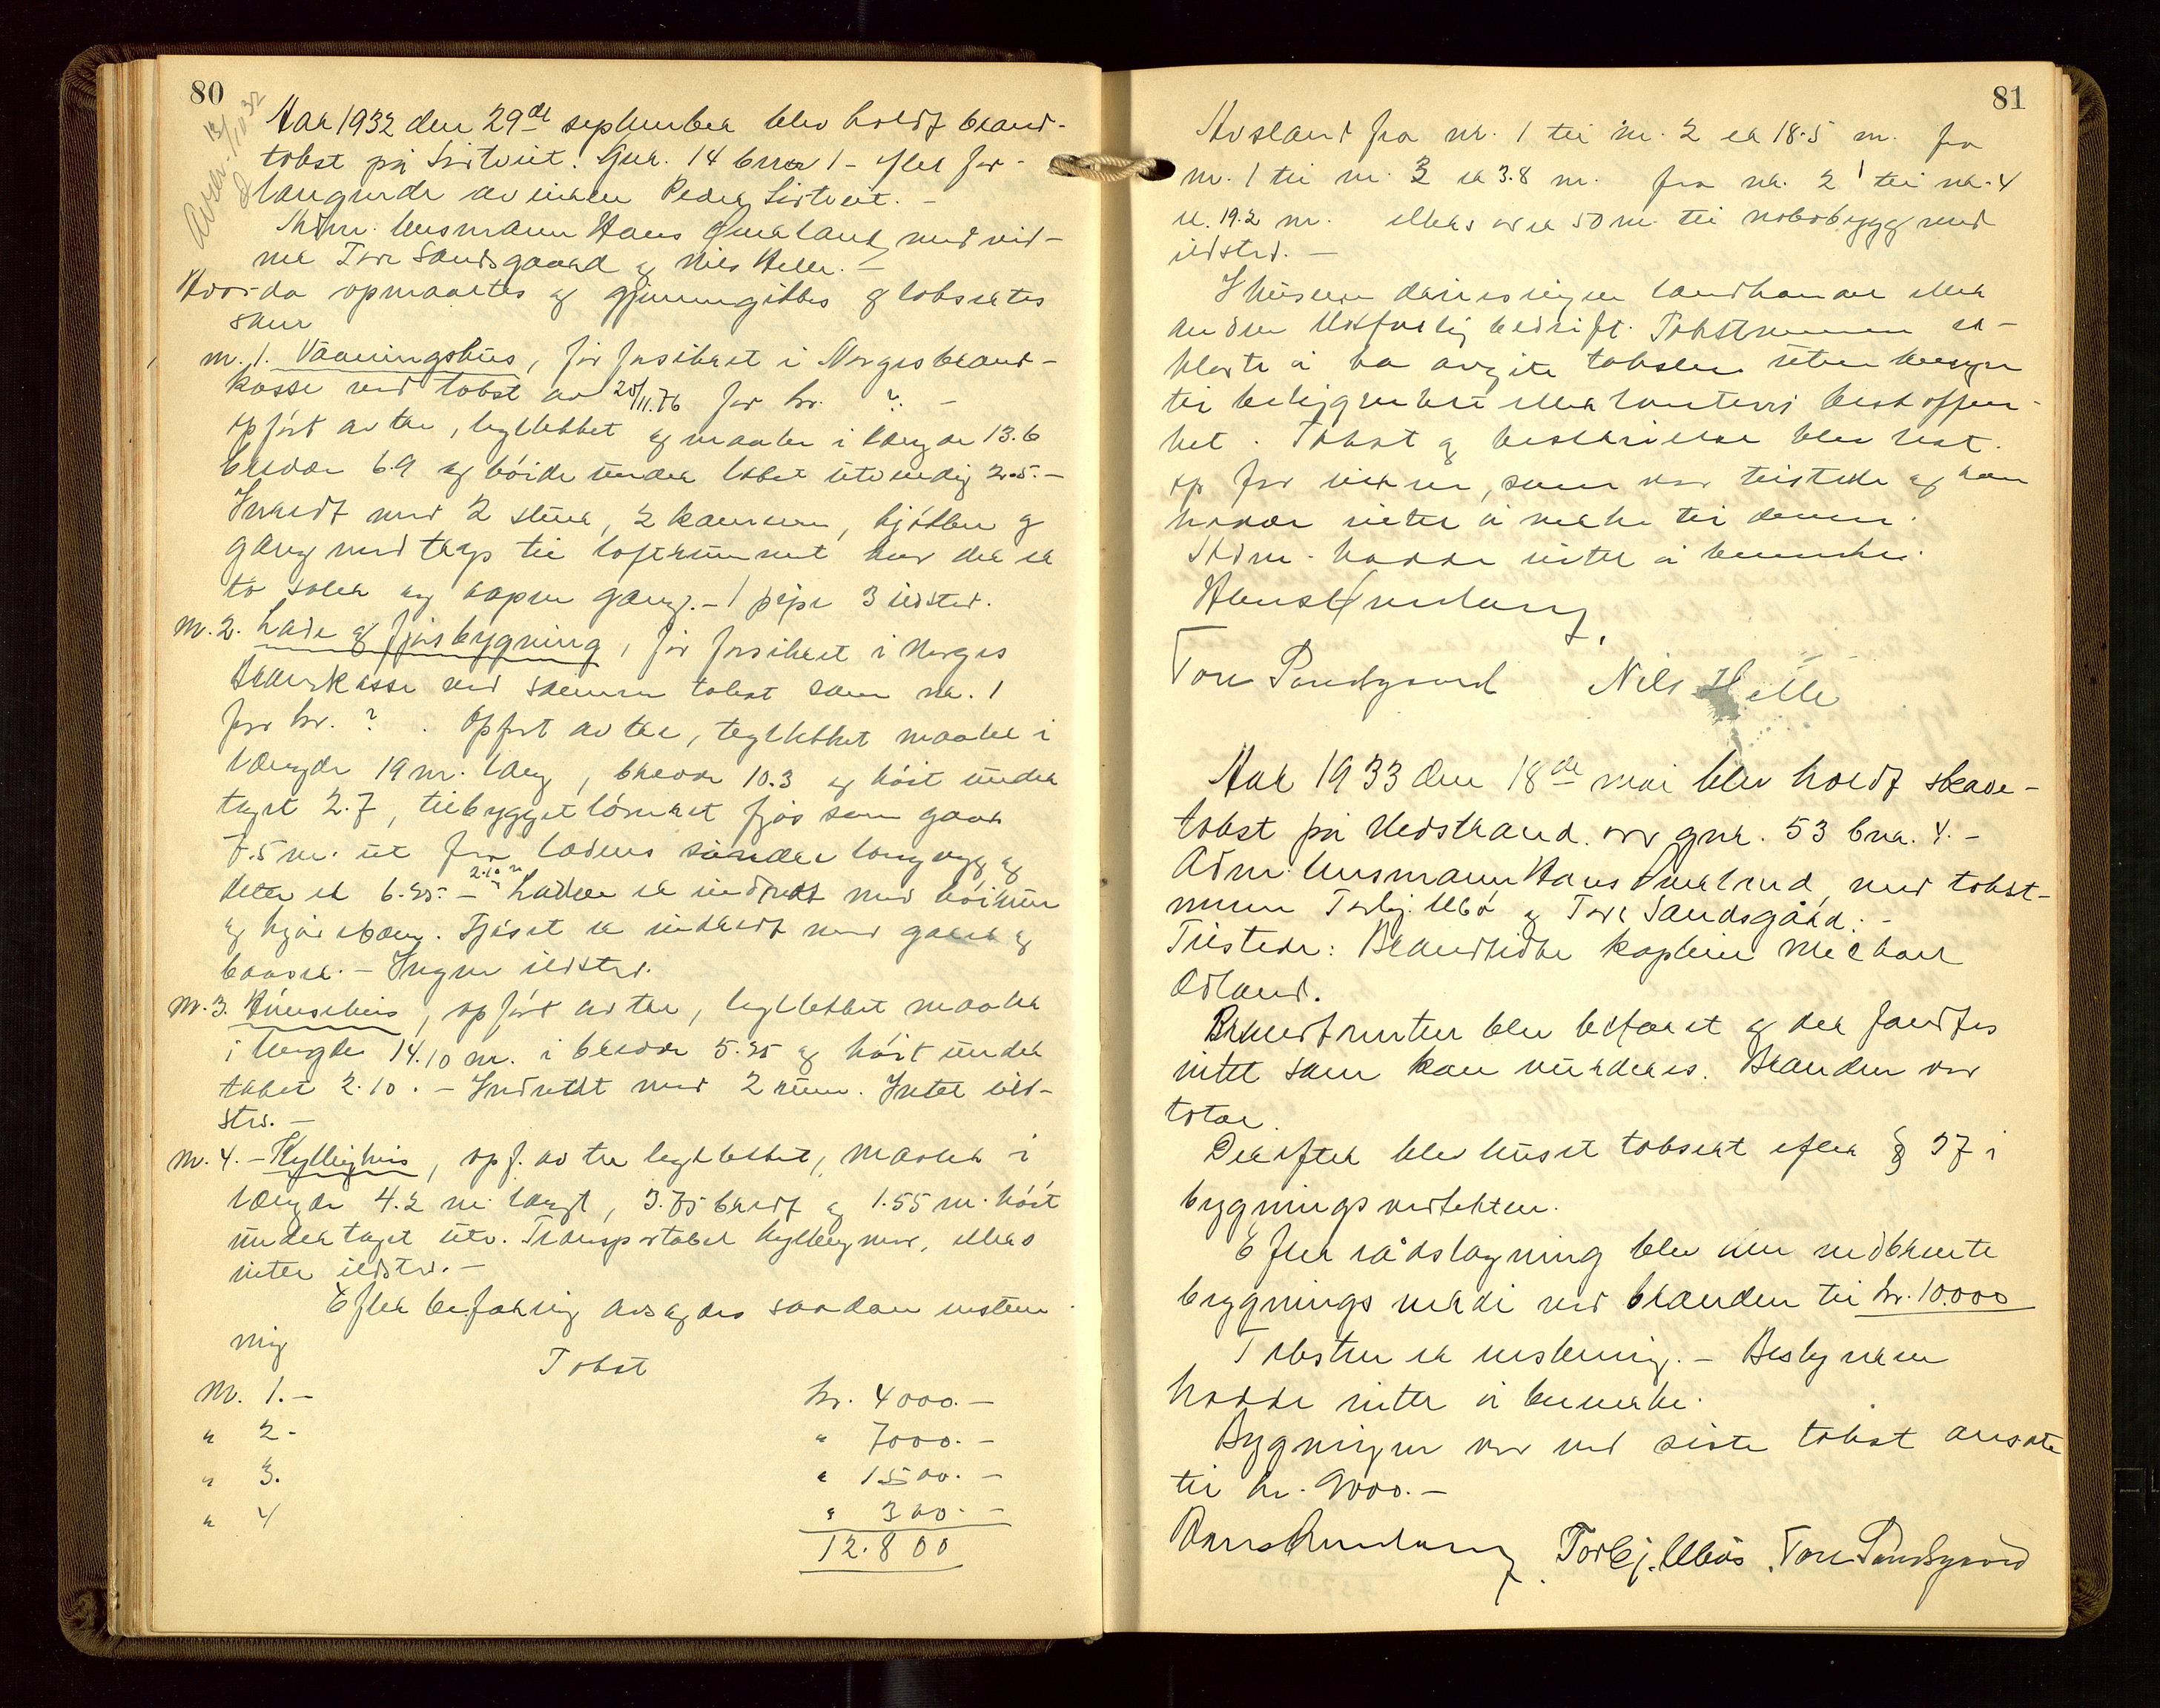 80
Avskr. 13/10 32
Aar 1932 den 29de september blev holdt brand-
takst på Sistveit. Gnr. 14 bnr 1 - efter for-
langende av eieren Peder Sistveit. -
Adm. lensmann Hans Qualand med vid-
ner Tore Sandsgaard og Nils Helle. -
Hvorda opmaaltes og gjennemgikkes og takseres
som
nr. 1. Vaaningshus, før forsikret i Norges brand-
kasse ved takst av 20/11.76 for kr. ? -
opført av tre, tegltekket og maaler i længde 13.6
bredde 6.9 og høide under taket utvendig 2.5. -
Inredt med 2 stuer, 2 kammere, kjøkken og
gang med trap til loftrummet hvor der er
to soler og aapen gang. - 1 pipe 3 ildsted.
nr. 2. Lade og fjøsbygning, før forsikret i Norges
Brandkasse ved samme takst som nr. 1
for kr. ? . Opført av tre, tegltekket maaler i
længde 19 m. lang, bredde 10.3 og høit under
taget 2.7, tilbygget fjøs som gaar
7.5 m. ut fra ladens søndre langvegg og
dette er 6.25. - 2.10 m Laden er indredt med høirum
og kjørebane. Fjøset er indredt med golv og
baaser. - Ingen ildsted.
nr. 3. Hønsehus, opført av tre, tegltekket maaler
i lengde 14.10 m. i bredde 5.25 og høit under
taket 2.10. - Indredt med 2 rum. Intet ild-
sted. -
nr. 4. - Kyllinghus, opf. av tre tegltekket, maaler i
længde 4.2 m. langt, 3.75 bredt og 1.55 m. høit
under taget utv. Transportabel kyllingmor, ellers
intet ildsted. -
Efter befaring avsagdes saadan enstem
mig
Takst
Nr. 1. - kr. 4000. -
" 2 - " 7000. -
" 3. " 1500. -
" 4 " 300. -
12.800
81
Avstand fra nr. 1 til nr. 2 er 18.5 m. fra
nr. 1 til nr. 3 er 3.8 m. fra nr. 2 til nr. 4
er 19.2 m. ellers over 50 m. til nabobygg med
ildsted. -
I husene drives ingen landhandel eller
anden ildsfarlig bedrift. Takstmennene er-
klærte å ha avgitt taksten uten hensyn
til beliggenhet eller tomtens beskaffen-
het. Takst og beskrivelse blev lest
op for eieren, som var tilstede og han
hadde intet å merke til denne.
Adm. hadde intet å bemerke.
Hans Qualand
Tore Sandsgaard Nils Helle
Aar 1933 den 18de mai blev holdt skade-
takst på Nedstrand. av gnr. 53 bnr. 4. -
Adm: lensmann Hans Qualand, med takst-
menn Torbj. Ubø og Tore Sandsgård. -
Tilstede: Brandlidte kaptein Michael
Ødland.
Branntomten blev befaret og der fandtes
intet som kan vurderes. Branden var
total.
Derefter blev huset taksert efter § 27 i
bygningsvedtekten.
Efter rådslagning blev den nedbrente
bygnings verdi ved branden til kr. 10.000
Taksten er enstemmig. - Bestyreren
hadde intet å bemerke.
Bygningen var ved siste takst ansatt
til kr. 9000. -
Hans Qualand Torbj. Ubøe Tore Sandsgaard